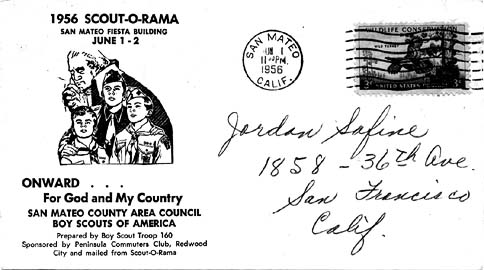 1956 SCOUT-O-RAMA
SAN MATEO FIESTA BUILDING
JUNE 1 - 2
ONWARD . . .
For God and My Country
SAN MATEO COUNTY AREA COUNCIL
BOY SCOUTS OF AMERICA
Prepared by Boy Scout Troop 160
Sponsored by Peninsula Commuters Club, Redwood
City and mailed from Scout-O-Rama
SAN MATEO
1
PM
1956
CALIF.
WILDLIFE CONSERVATION
WILD TURKEY
UNITED STATES
Jordan Safine
1858 - 36th Ave.
San Francisco
Calif.